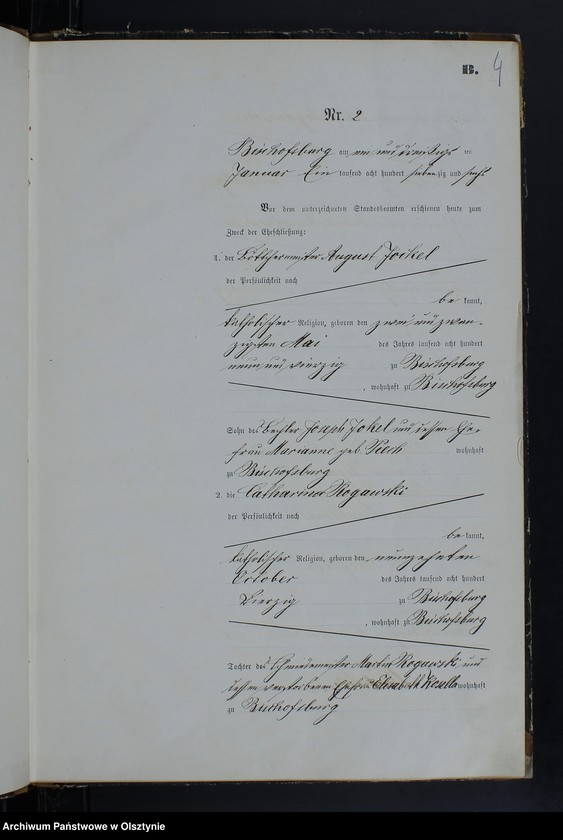 B. 4
Nr. 2
Bischofsburg am ein und dreißigst ten
Januar Ein tausend acht hundert siebenzig und sechs
Vor dem unterzeichneten Standesbeamten erschienen heute zum
Zweck der Eheschließung:
1. der Böttchermeister August Jockel
der Persönlichkeit nach
be kannt,
katholischer Religion, geboren den zwei und zwan-
zigsten Mai des Jahres tausend acht hundert
neun und vierzig zu Bischofsburg
, wohnhaft zu Bischofsburg
Sohn des Joseph Jokel und dessen Ehe-
frau Marianne geb. wohnhaft
zu Bischofsburg
2. die Catharina Rogawski
der Persönlichkeit nach
be kannt,
katholischer Religion, geboren den neunzehnten
October des Jahres tausend acht hundert
Vierzig zu Bischofsburg
, wohnhaft zu Bischofsburg
Tochter des Schmiedemeister Martin Rogawski und
dessen verstorbenen Ehefrau Elisabeth wohnhaft
zu Bischofsburg
Archiwum Państwowe w Olsztynie